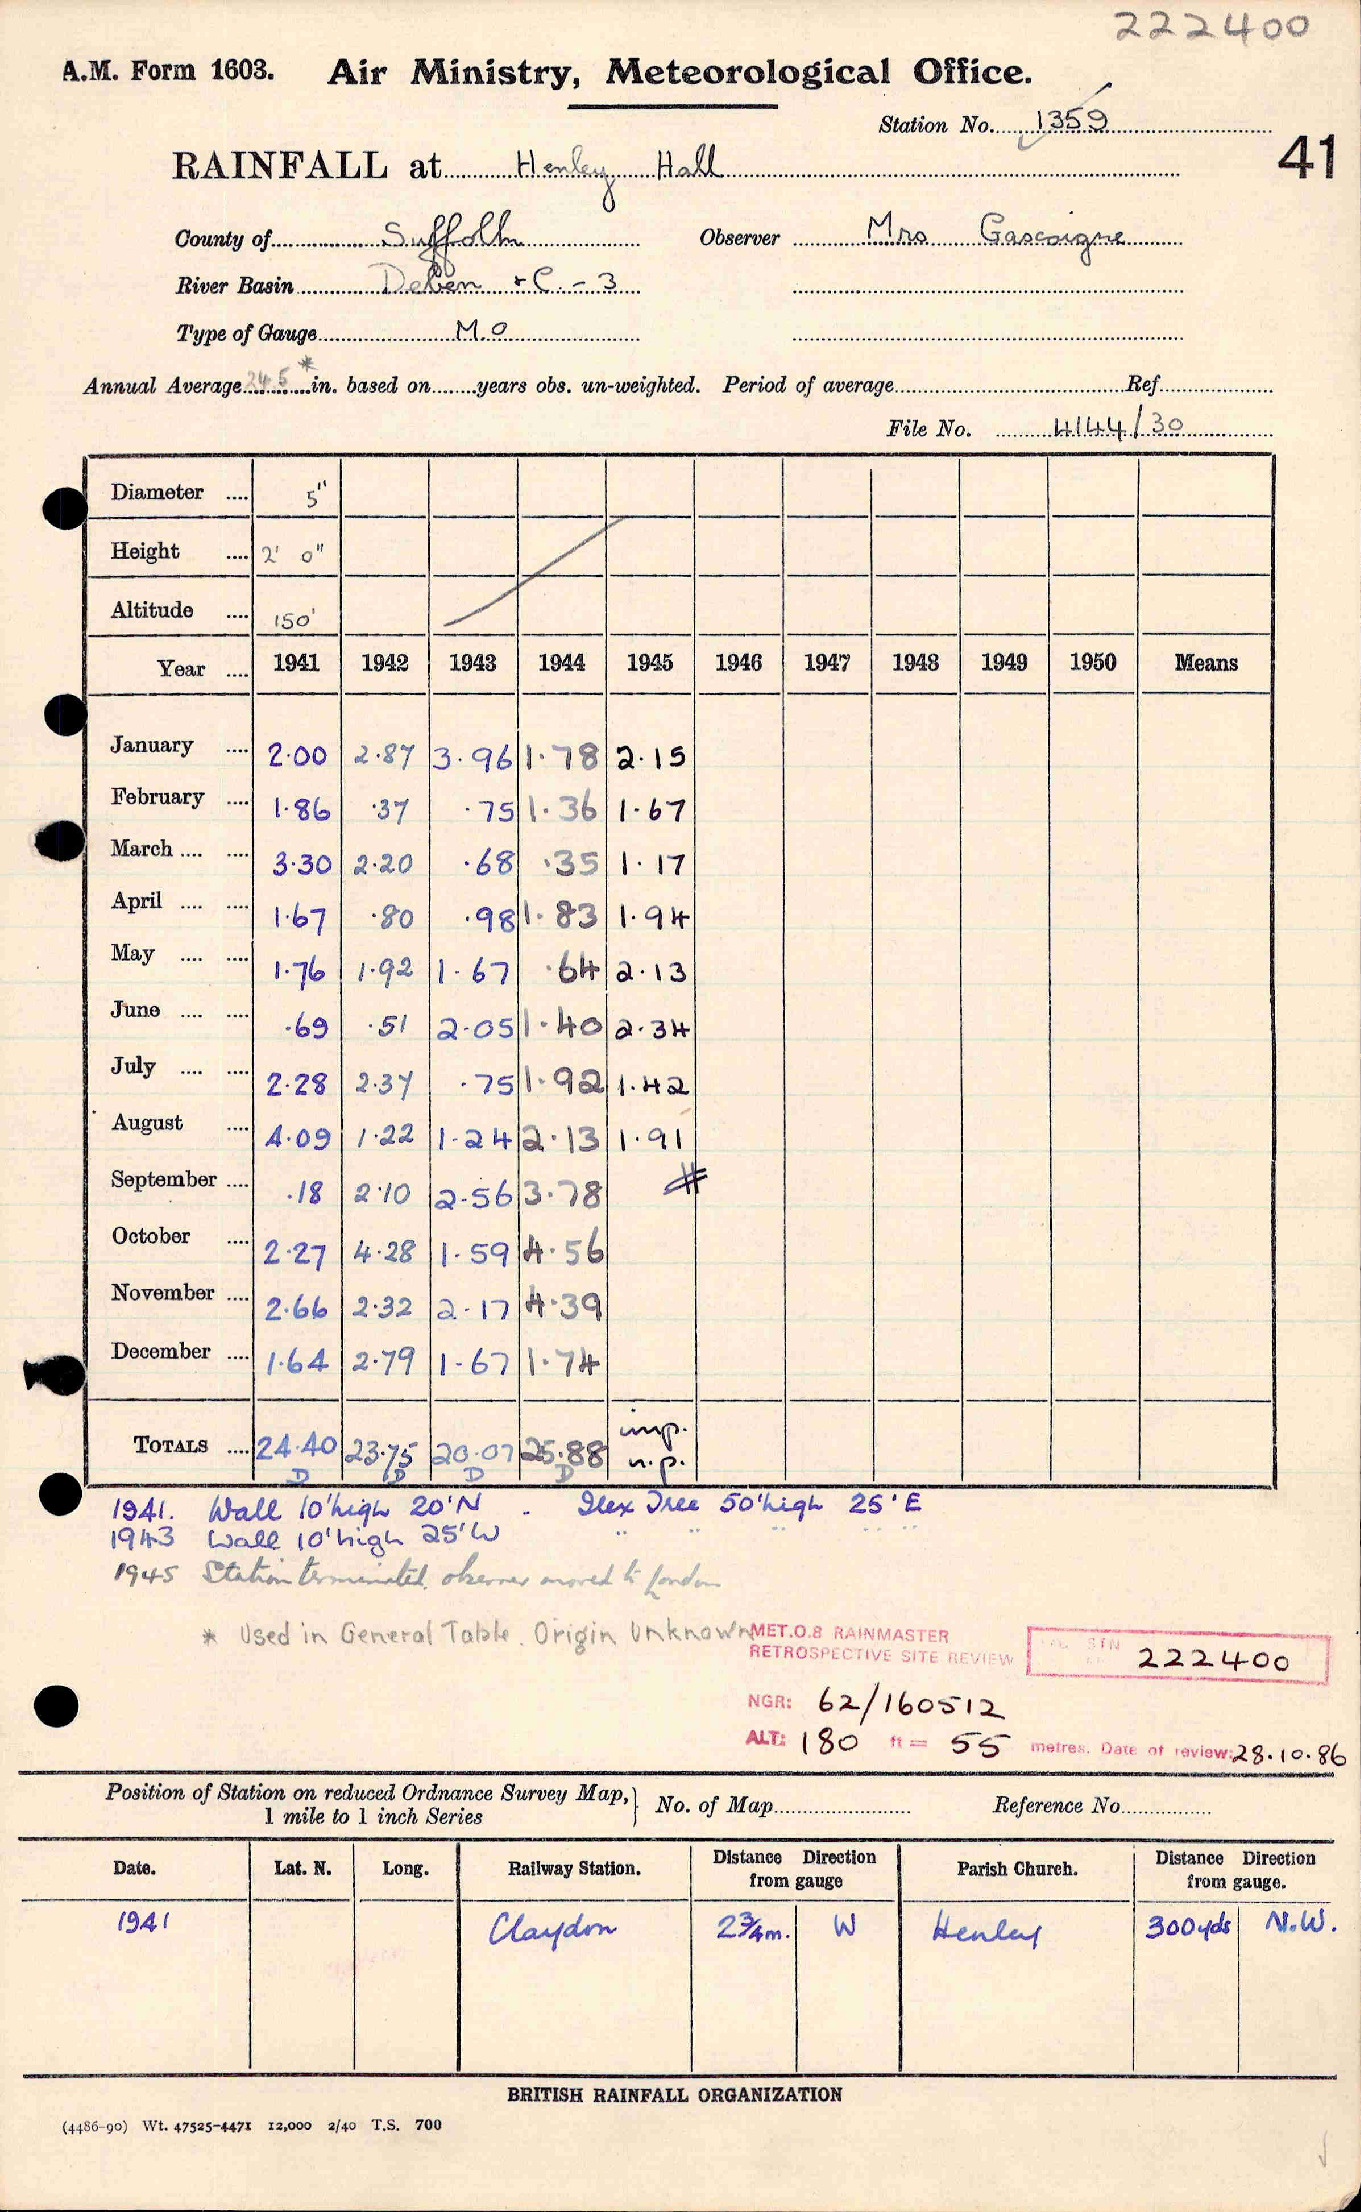 222400
A.M. Form 1603. Air Ministry, Meteorological Office.
Station No. 1359
41
RAINFALL at Henley Hall
County of Suffolk Observer Mrs Gascoigne
River Basin Deben &C. - 3
Type of Gauge M.O
Annual Average 24.5 * in. based on years obs. un-weighted. Period of average Ref
File No. 4144/30
Diameter .... 5"
Height .... 2' 0"
Altitude .... 150'
Year .... 1941 1942 1943 1944 1945 1946 1947 1948 1949 1950 Means
January .... 2.00 2.87 3.96 1.78 2.15
February .... 1.86 .37 .75 1.36 1.67
March .... .... 3.30 2.20 .68 .35 1.17
April .... .... 1.67 .80 .98 1.83 1.94
May .... .... 1.76 1.92 1.67 .64 2.13
June .... .... .69 .51 2.05 1.40 2.34
July .... .... 2.28 2.37 .75 1.92 1.42
August .... 4.09 1.22 1.24 2.13 1.91
September .... .18 2.10 2.56 3.78
October .... 2.27 4.28 1.59 4.56
November .... 2.66 2.32 2.17 4.39
December .... 1.64 2.79 1.67 1.74
TOTALS .... 24.40 23.75 20.07 25.88 imp. n.p.
D D D D
1941. Wall 10' high 20' N - Ilex Tree 50' high 25' E
1943 Wall 10' high 25' W " " " " "
1945 Station terminated, observer moved to London
* Used in General Table. Origin Unknown
MET.O.8 RAINMASTER
RETROSPECTIVE SITE REVIEW
STN 222400
NGR: 62/160512
ALT: 180 ft = 55 metres. Date of review: 28.10.86
Position of Station on reduced Ordnance Survey Map, 1 mile to 1 inch Series } No. of Map Reference No.
Date. Lat. N. Long. Railway Station. Distance Direction from gauge Parish Church. Distance Direction from gauge.
1941 Claydon 2¾m. W Henley 300yds N.W.
BRITISH RAINFALL ORGANIZATION
(4486-90) Wt. 47525-4471 12,000 2/40 T.S. 700